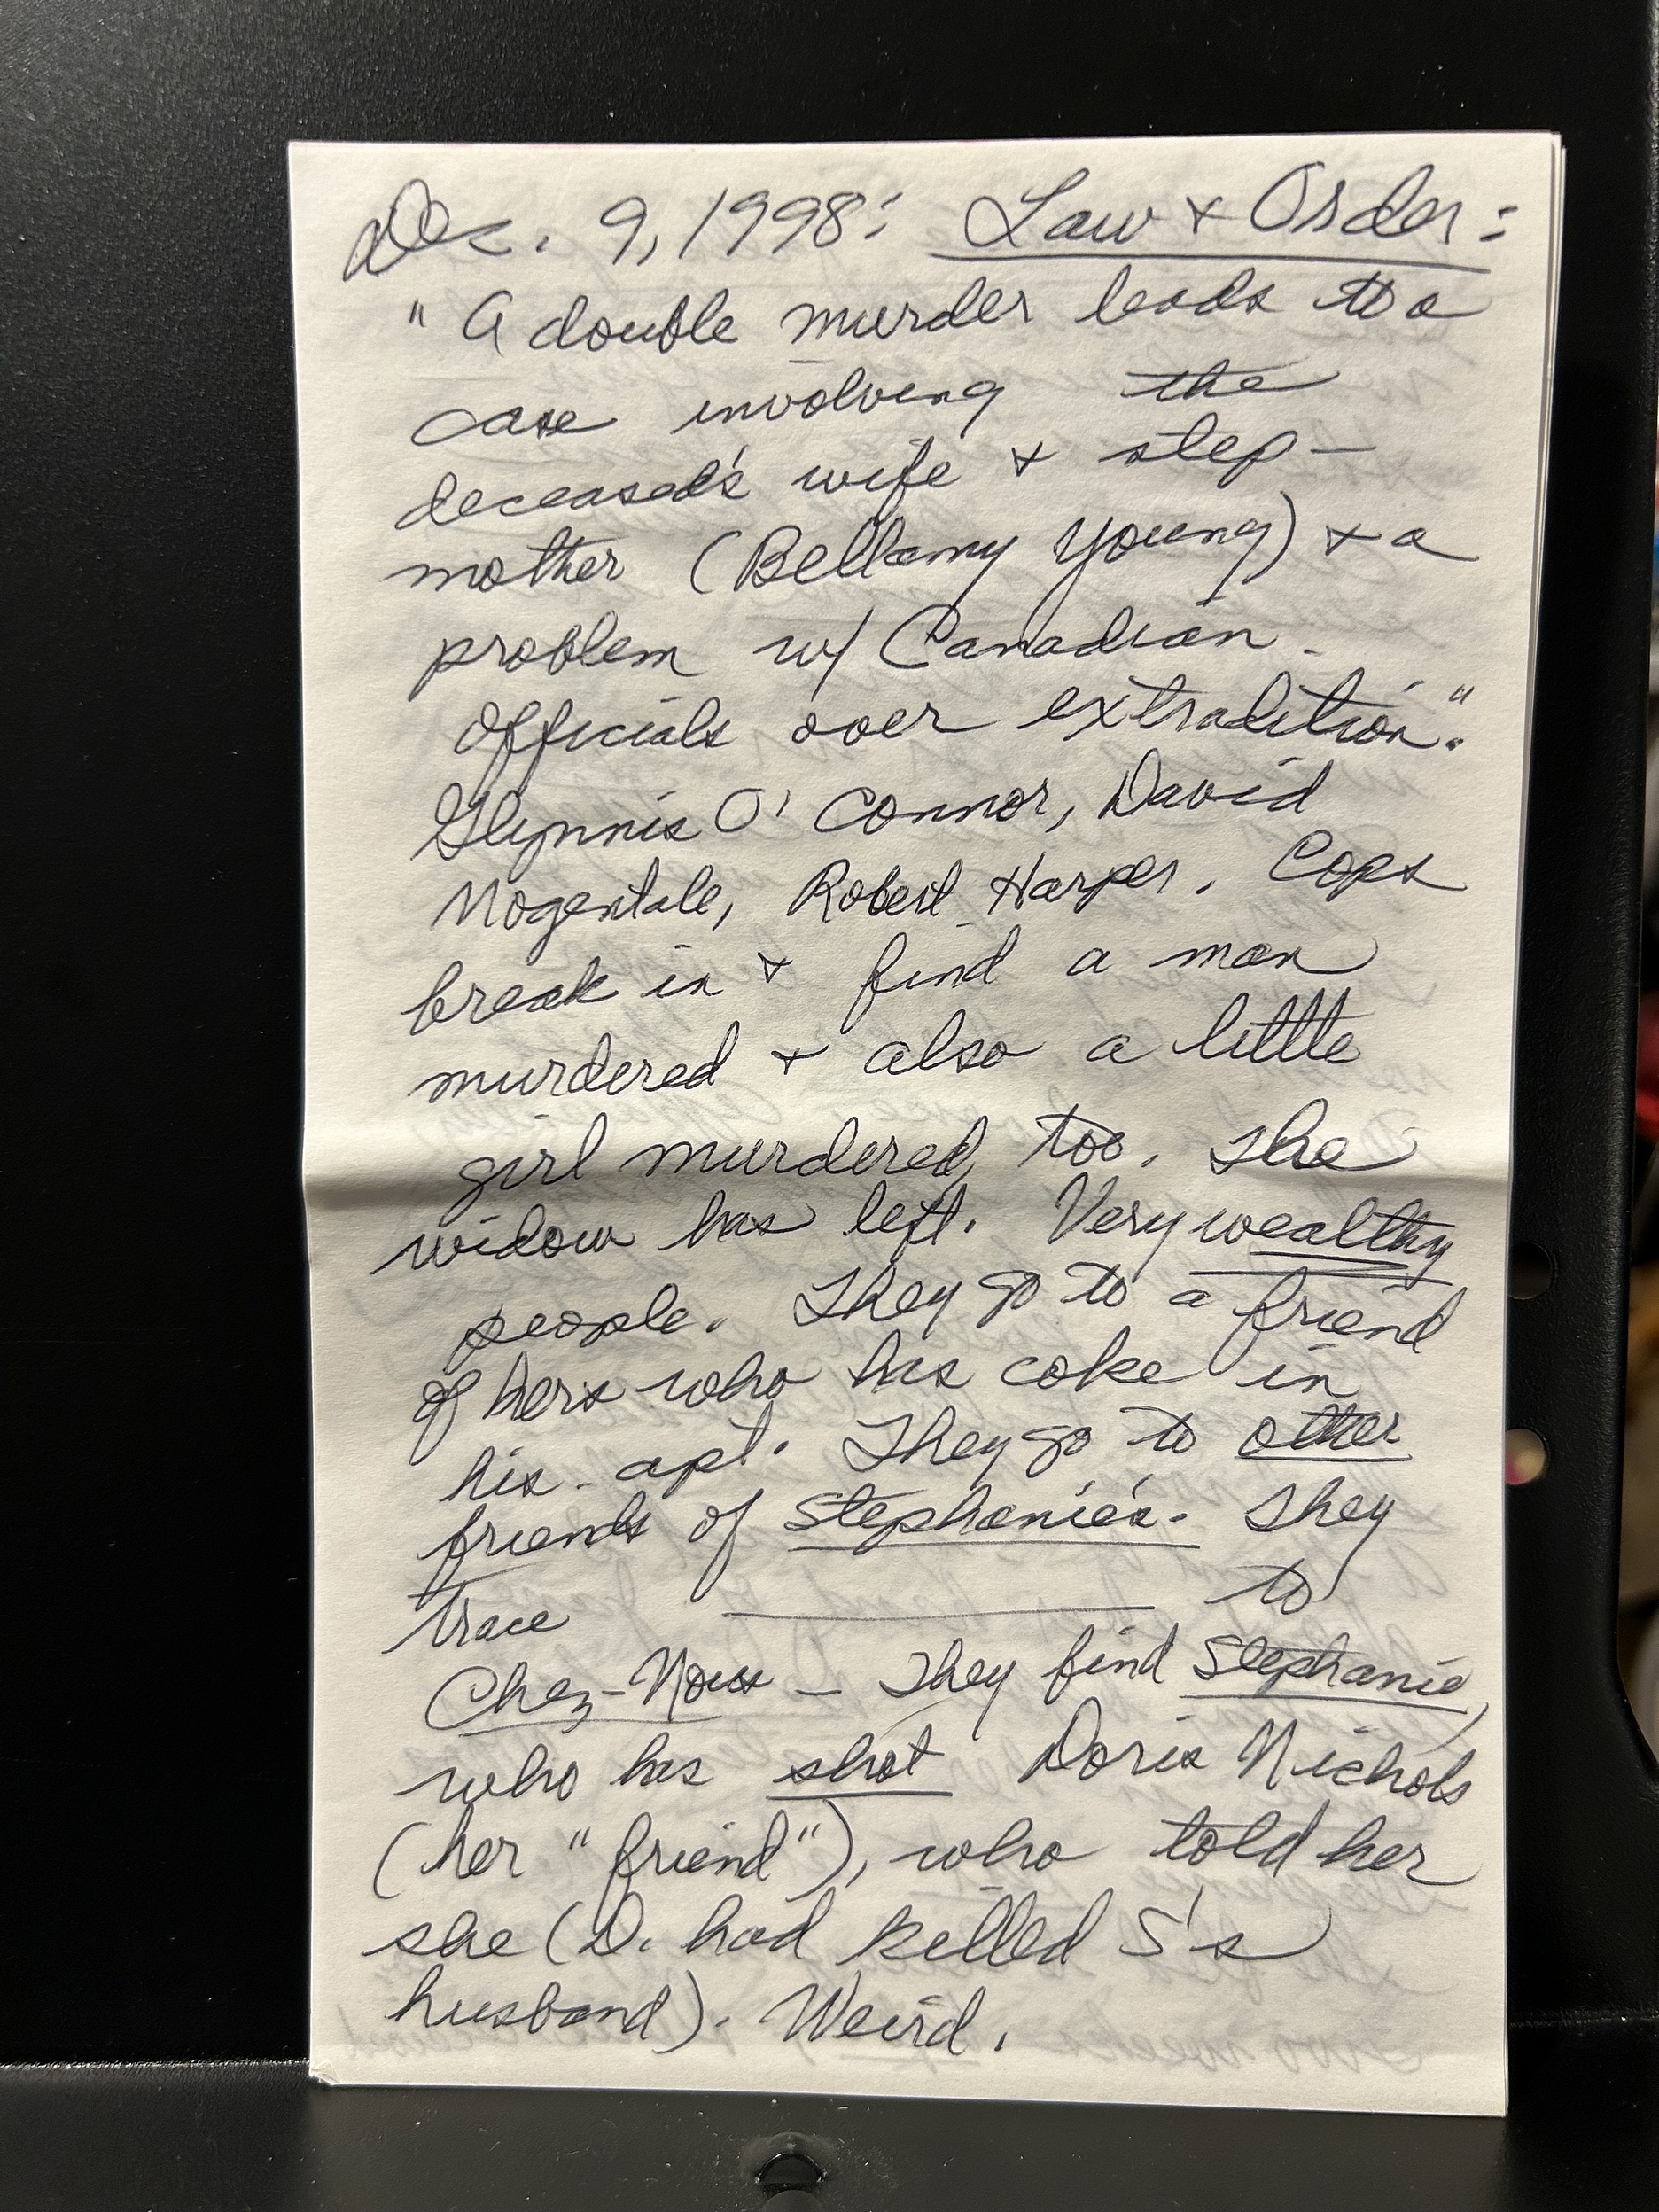 Dec. 9, 1998: Law + Order:
"A double murder leads to a
case involving the
deceased's wife + step-
mother (Bellamy Young) + a
problem w/ Canadian
officials over extradition."
Glynnis O'Connor, David
Nogentale, Robert Harper. Cops
break in + find a man
murdered + also a little
girl murdered, too. The
widow has left. Very wealthy
people. They go to a friend
of hers who has coke in
his apt. They go to other
friends of Stephanie's. They
trace ______ to
Chez-Nous - They find Stephanie,
who has shot Doris Nichols
(her "friend"), who told her
she (D. had killed S's
husband). Weird.